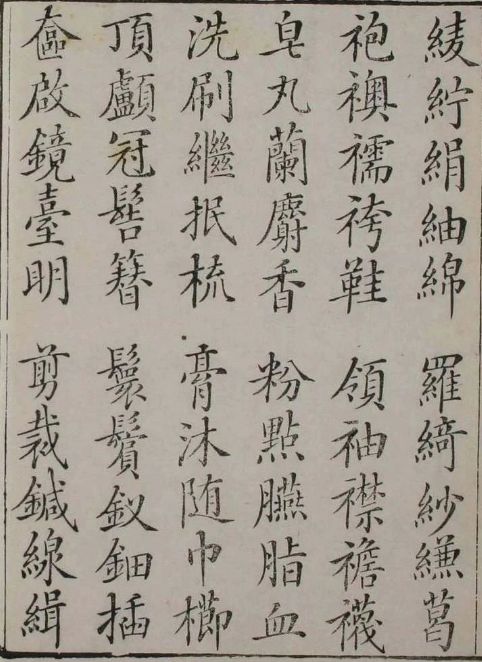 綾紵絹紬綿 羅綺紗縑葛
袍襖襦袴鞋 領袖襟襜襪
皂丸蘭麝香 粉點臙脂血
洗刷繼抿梳 膏沐随巾櫛
頂顱冠髻簪 鬟鬢釵鈿插
奩啟鏡臺明 剪裁鍼線緝